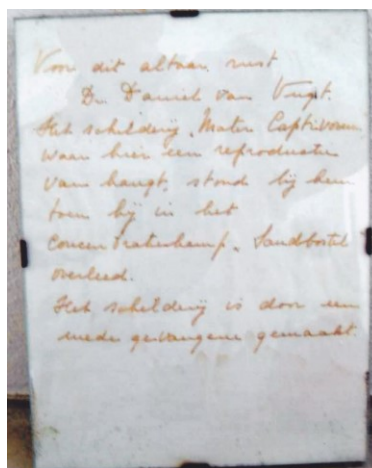 Voor dit altaar rust
Dr. Daniel van Vugt.
Het schilderij „Mater Captivorum
waar hier een reproductie
van hangt, stond bij hem
toen hij in het
Concentratiekamp „Sandbostel
overleed.
Het schilderij is door een
mede gevangene gemaakt.